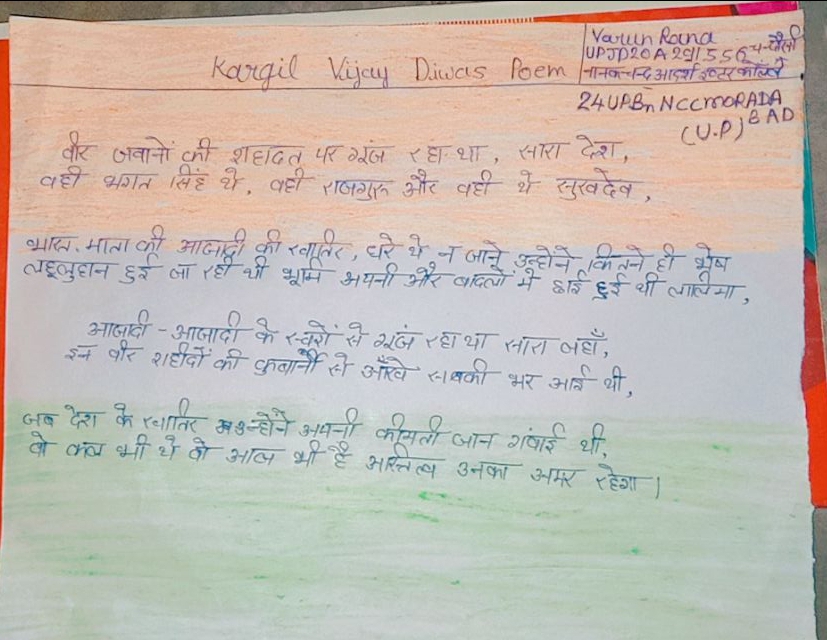 Kargil Vijay Diwas Poem
Varun Rana
UPJD20A291556
नानकचन्द आदर्श इण्टर कॉलेज
24 UP Bn NCC MORADA
BAD
(U.P)
वीर जवानों की शहादत पर गूंज रहा था, सारा देश,
वही भगत सिंह थे, वही राजगुरू और वही थे सुखदेव,
भारत माता की आजादी की खातिर, धरे थे न जाने उन्होने कितने ही भेष
लहूलुहान हुई जा रही थी भूमि अपनी और बादलों में छाई हुई थी लालिमा,
आजादी - आजादी के स्वरों से गूंज रहा था सारा जहाँ,
इन वीर शहीदों की कुबार्नी से आँखे सबकी भर आई थी,
जब देश के खातिर उन्होंने अपनी कीमती जान गंवाई थी,
वो कल भी थे वो आज भी है अस्तित्व उनका अमर रहेगा।